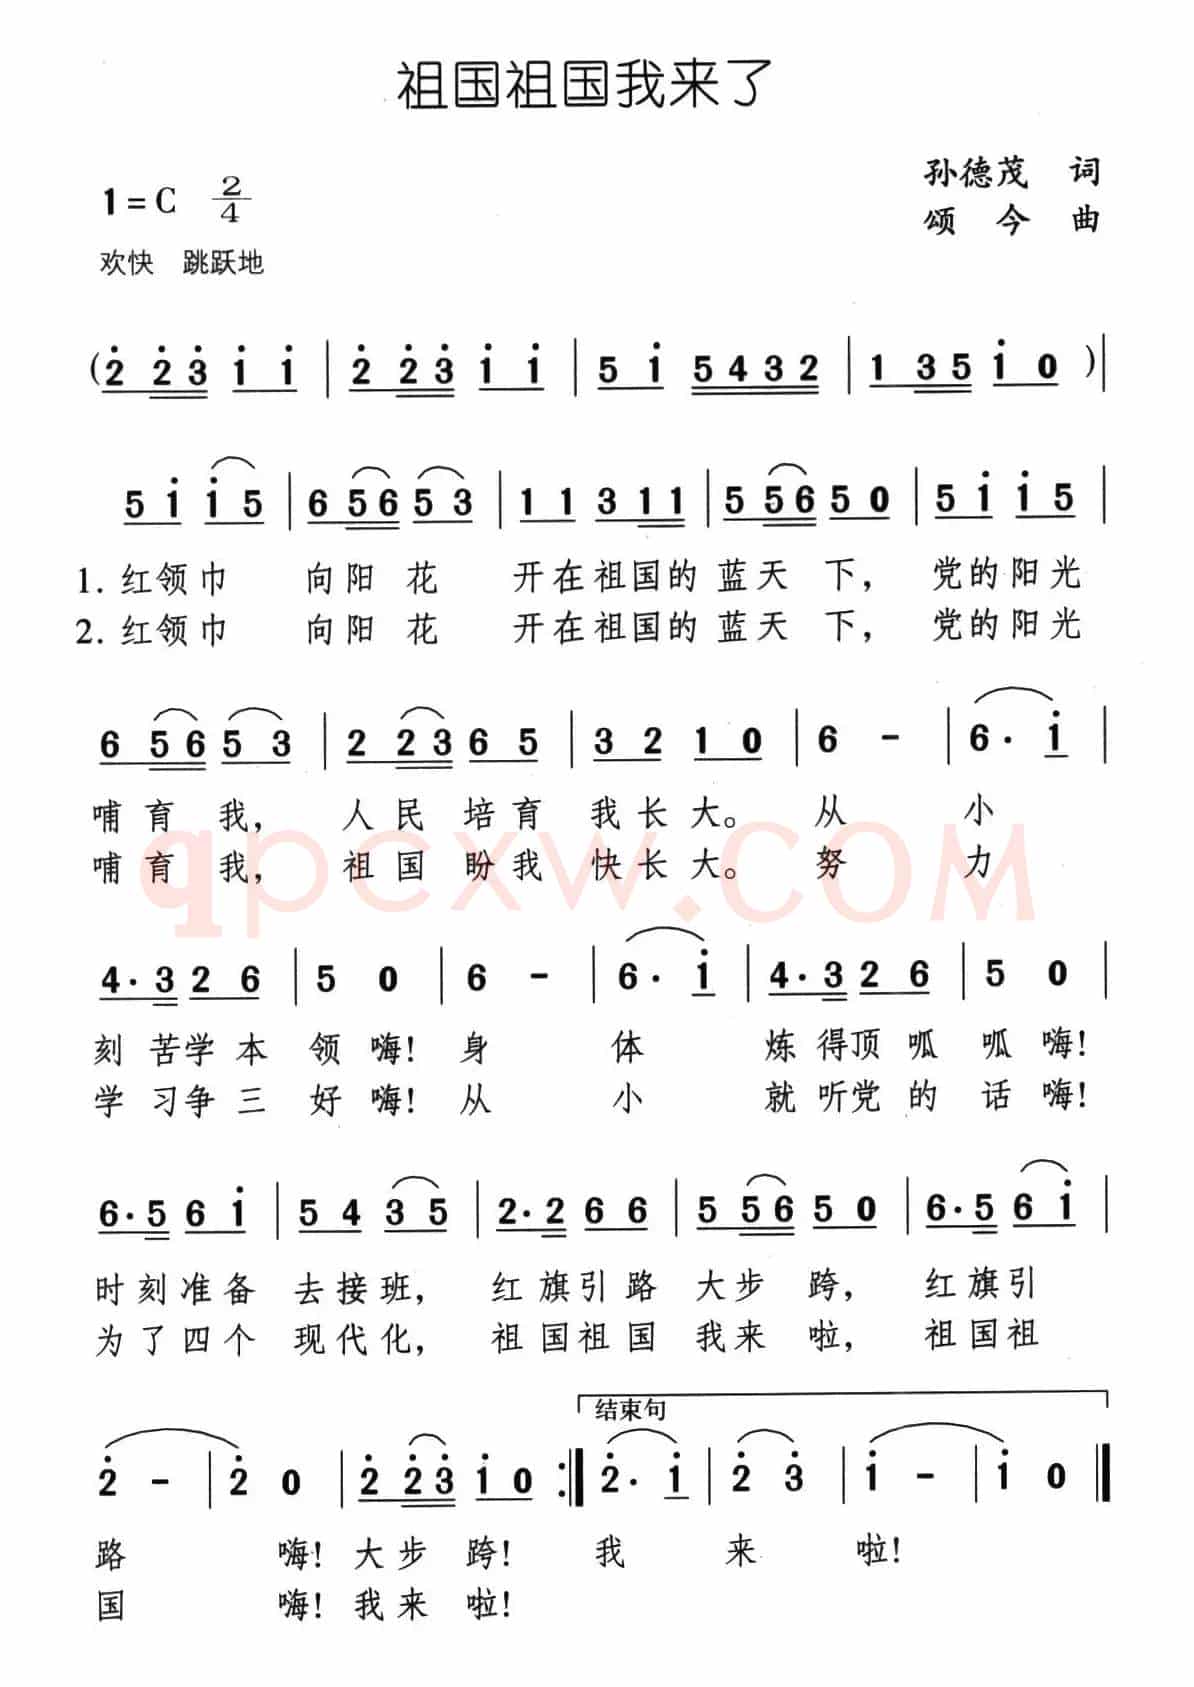 祖国祖国我来了
孙德茂 词
1=C 2/4
颂 今 曲
欢快 跳跃地
(2̇ 2̇3̇ 1̇ 1̇ | 2̇ 2̇3̇ 1̇ 1̇ | 5 1̇ 5432 | 1 35 1̇ 0 )|
5 1̇ 1̇ 5 | 6 56 5 3 | 1 1 3 11 | 5 56 5 0 | 5 1̇ 1̇ 5 |
1. 红领巾 向阳 花 开在祖国的 蓝天 下， 党的阳光
2. 红领巾 向阳 花 开在祖国的 蓝天 下， 党的阳光
6 56 5 3 | 2 23 6 5 | 3 2 1 0 | 6 - | 6· 1̇ |
哺育 我， 人民 培育 我长大。 从 小
哺育 我， 祖国 盼我 快长大。 努 力
qpcxw.COM
4·3 2 6 | 5 0 | 6 - | 6· 1̇ | 4·3 2 6 | 5 0 |
刻 苦学 本 领 嗨! 身 体 炼 得顶 呱 呱 嗨!
学 习争 三 好 嗨! 从 小 就 听党 的 话 嗨!
6·5 6 1̇ | 5 4 3 5 | 2·2 6 6 | 5 56 5 0 | 6·5 6 1̇ |
时刻准备 去接班， 红旗引路 大步 跨， 红旗引
为了四个 现代化， 祖国祖国 我来 啦， 祖国祖
结束句
2̇ - | 2̇ 0 | 2̇ 2̇3̇ 1̇ 0 :| 2̇· 1̇ | 2̇ 3̇ | 1̇ - | 1̇ 0 ‖
路 嗨! 大步 跨! 我 来 啦!
国 嗨! 我来 啦!